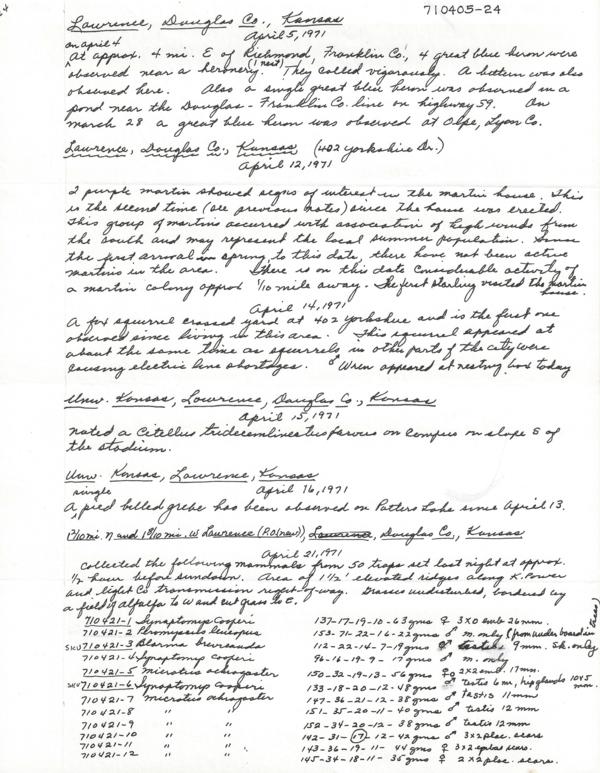 710405-24
Lawrence, Douglas Co., Kansas
April 5, 1971
on april 4
At approx. 4 mi. E of Richmond, Franklin Co., 4 great blue heron were
observed near a heronery (1 nest). They called vigorously. A bittern was also
observed here. Also a single great blue heron was observed in a
pond near the Douglas - Franklin Co. line on highway 59. On
march 28 a great blue heron was observed at Olpe, Lyon Co.
Lawrence, Douglas Co., Kansas (402 Yorkshire Dr.)
April 12, 1971
2 purple martin showed signs of interest in the martin house. This
is the second time (see previous notes) since the house was erected.
This group of martins occurred with association of high winds from
the south and may represent the local summer population. Since
the first arrival in spring, to this date, there have not been active
martins in the area. There is on this date considerable activity of
a martin colony approx 1/10 mile away. The first starling visited the martin
house.
April 14, 1971
A fox squirrel crossed yard at 402 Yorkshire and is the first one
observed since living in this area. This squirrel appeared at
about the same time as squirrels in other parts of the city were
causing electric line shortages. ♂ Wren appeared at nesting box today
Univ. Kansas, Lawrence, Douglas Co., Kansas
April 15, 1971
noted a Citellus tridecemlineatus on campus on slope S of
the stadium.
Univ. Kansas, Lawrence, Kansas
single April 16, 1971
A pied billed grebe has been observed on Potters Lake since April 13.
mi. N and mi. W Lawrence (P.O. new), Lawrence, Douglas Co., Kansas
April 21, 1971
Collected the following mammals from 50 traps set last night at approx.
1/2 hour before sundown. Area of 1 1/2' elevated ridges along K. Power
and Light Co transmission right-of-way. Grasses undisturbed, bordered by
a field of alfalfa to W and cut grass to E.
710421-1 Synaptomys cooperi 137-17-19-10-63gms ♀ 3x0 emb 26mm.
710421-2 Peromyscus leucopus 153-71-22-16-22gms ♂ m. only (from under board in trees)
SKU 710421-3 Blarina brevicauda 112-22-14-7-19gms ♂ testis 9mm. sk. only
710421-4 Synaptomys cooperi 96-16-19-9-17gms ♂ m. only
710421-5 microtus ochrogaster 150-32-19-13-56gms ♀ 2x2 emb. 17mm.
SKU 710421-6 Synaptomys cooperi 133-18-20-12-48gms ♂ testis 6m, hip glands 10x5 mm.
710421-7 microtus ochrogaster 147-36-21-12-38gms ♂ testis 11mm
710421-8 " " 151-35-20-11-40gms ♂ testis 12mm
710421-9 " " 152-34-20-12-38gms ♂ testis 12mm
710421-10 " " 142-31-(17)-12-42gms ♂ 3x2 plac. scars
710421-11 " " 143-36-19-11-44gms ♀ 3x2 plac scars.
710421-12 " " 145-34-18-11-35gms ♀ 2x2 plac. scars.